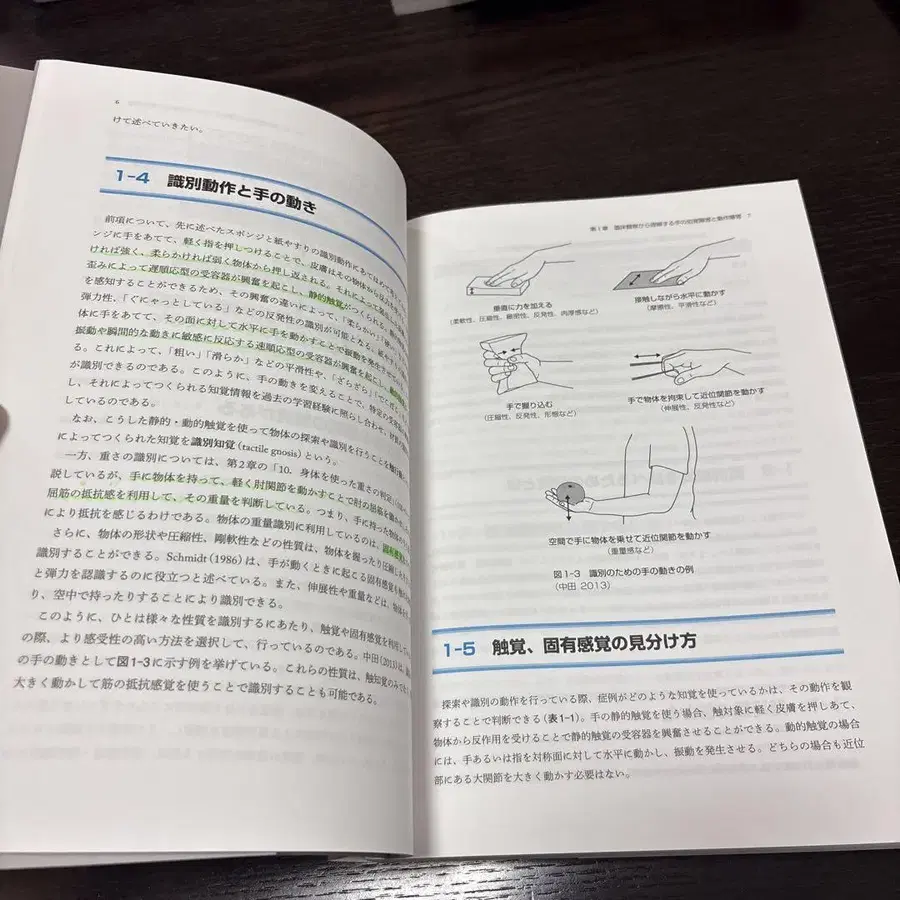 6
けて述べていきたい。
1-4 識別動作と手の動き
前項について、先に述べたスポンジと紙やすりの識別動作にあてはめて
ンジに手をあてて、軽く指を押しつけることで、皮膚はその物体から反力を
ければ強く、柔らかければ弱く物体から押し返される。それによって
歪みによって遅順応型の受容器が興奮を起こし、静的触覚がつくられる
を感知することができるため、その興奮の違いによって、「柔らかい」「硬い」
弾力性、「ぐにゃっとしている」などの反発性の識別が可能となる。紙やすり
体に手をあてて、その面に対して水平に手を動かすことで振動を発生させ
振動や瞬間的な動きに敏感に反応する速順応型の受容器が興奮を起こし、
る。これによって、「粗い」「滑らか」などの平滑性や、「ざらざら」
が識別できるのである。このように、手の動きを変えることで、特定の受容器
し、それによってつくられる知覚情報を過去の学習経験に照らし合わせ、
しているのである。
なお、こうした静的・動的触覚を使って物体の探索や識別を行うことを
によってつくられた知覚を識別知覚(tactile gnosis)という。
一方、重さの識別については、第2章の「10. 身体を使った重さの判定」
説しているが、手に物体を持って、軽く肘関節を動かすことで肘の
屈筋の抵抗感を利用して、その重量を判断している。つまり、手に持った物体
により抵抗を感じるわけである。物体の重量識別に利用しているのは、固有感覚
さらに、物体の形状や圧縮性、剛軟性などの性質は、物体を握ったり圧縮
識別することができる。Schmidt(1986)は、手が動くときに起こる固有感覚
と弾力を認識するのに役立つと述べている。また、伸展性や重量などは、物体
り、空中で持ったりすることにより識別できる。
このように、ひとは様々な性質を識別するにあたり、触覚や固有感覚を利用し
の際、より感受性の高い方法を選択して、行っているのである。中田(2013)は、
の手の動きとして図1-3に示す例を挙げている。これらの性質は、触知覚のみで
大きく動かして筋の抵抗感覚を使うことで識別することも可能である。
第1章 臨床観察から理解する手の知覚障害と動作障害 7
垂直に力を加える
(柔軟性、圧縮性、緻密性、反発性、肉厚感など)
接触しながら水平に動かす
(摩擦性、平滑性など)
手で握り込む
(圧縮性、反発性、形態など)
手で物体を拘束して近位関節を動かす
(伸展性、反発性など)
空間で手に物体を乗せて近位関節を動かす
(重量感など)
図1-3 識別のための手の動きの例
(中田 2013)
1-5 触覚、固有感覚の見分け方
探索や識別の動作を行っている際、症例がどのような知覚を使っているかは、その動作を観
察することで判断できる(表1-1)。手の静的触覚を使う場合、触対象に軽く皮膚を押しあて、
物体から反作用を受けることで静的触覚の受容器を興奮させることができる。動的触覚の場合
には、手あるいは指を対称面に対して水平に動かし、振動を発生させる。どちらの場合も近位
部にある大関節を大きく動かす必要はない。